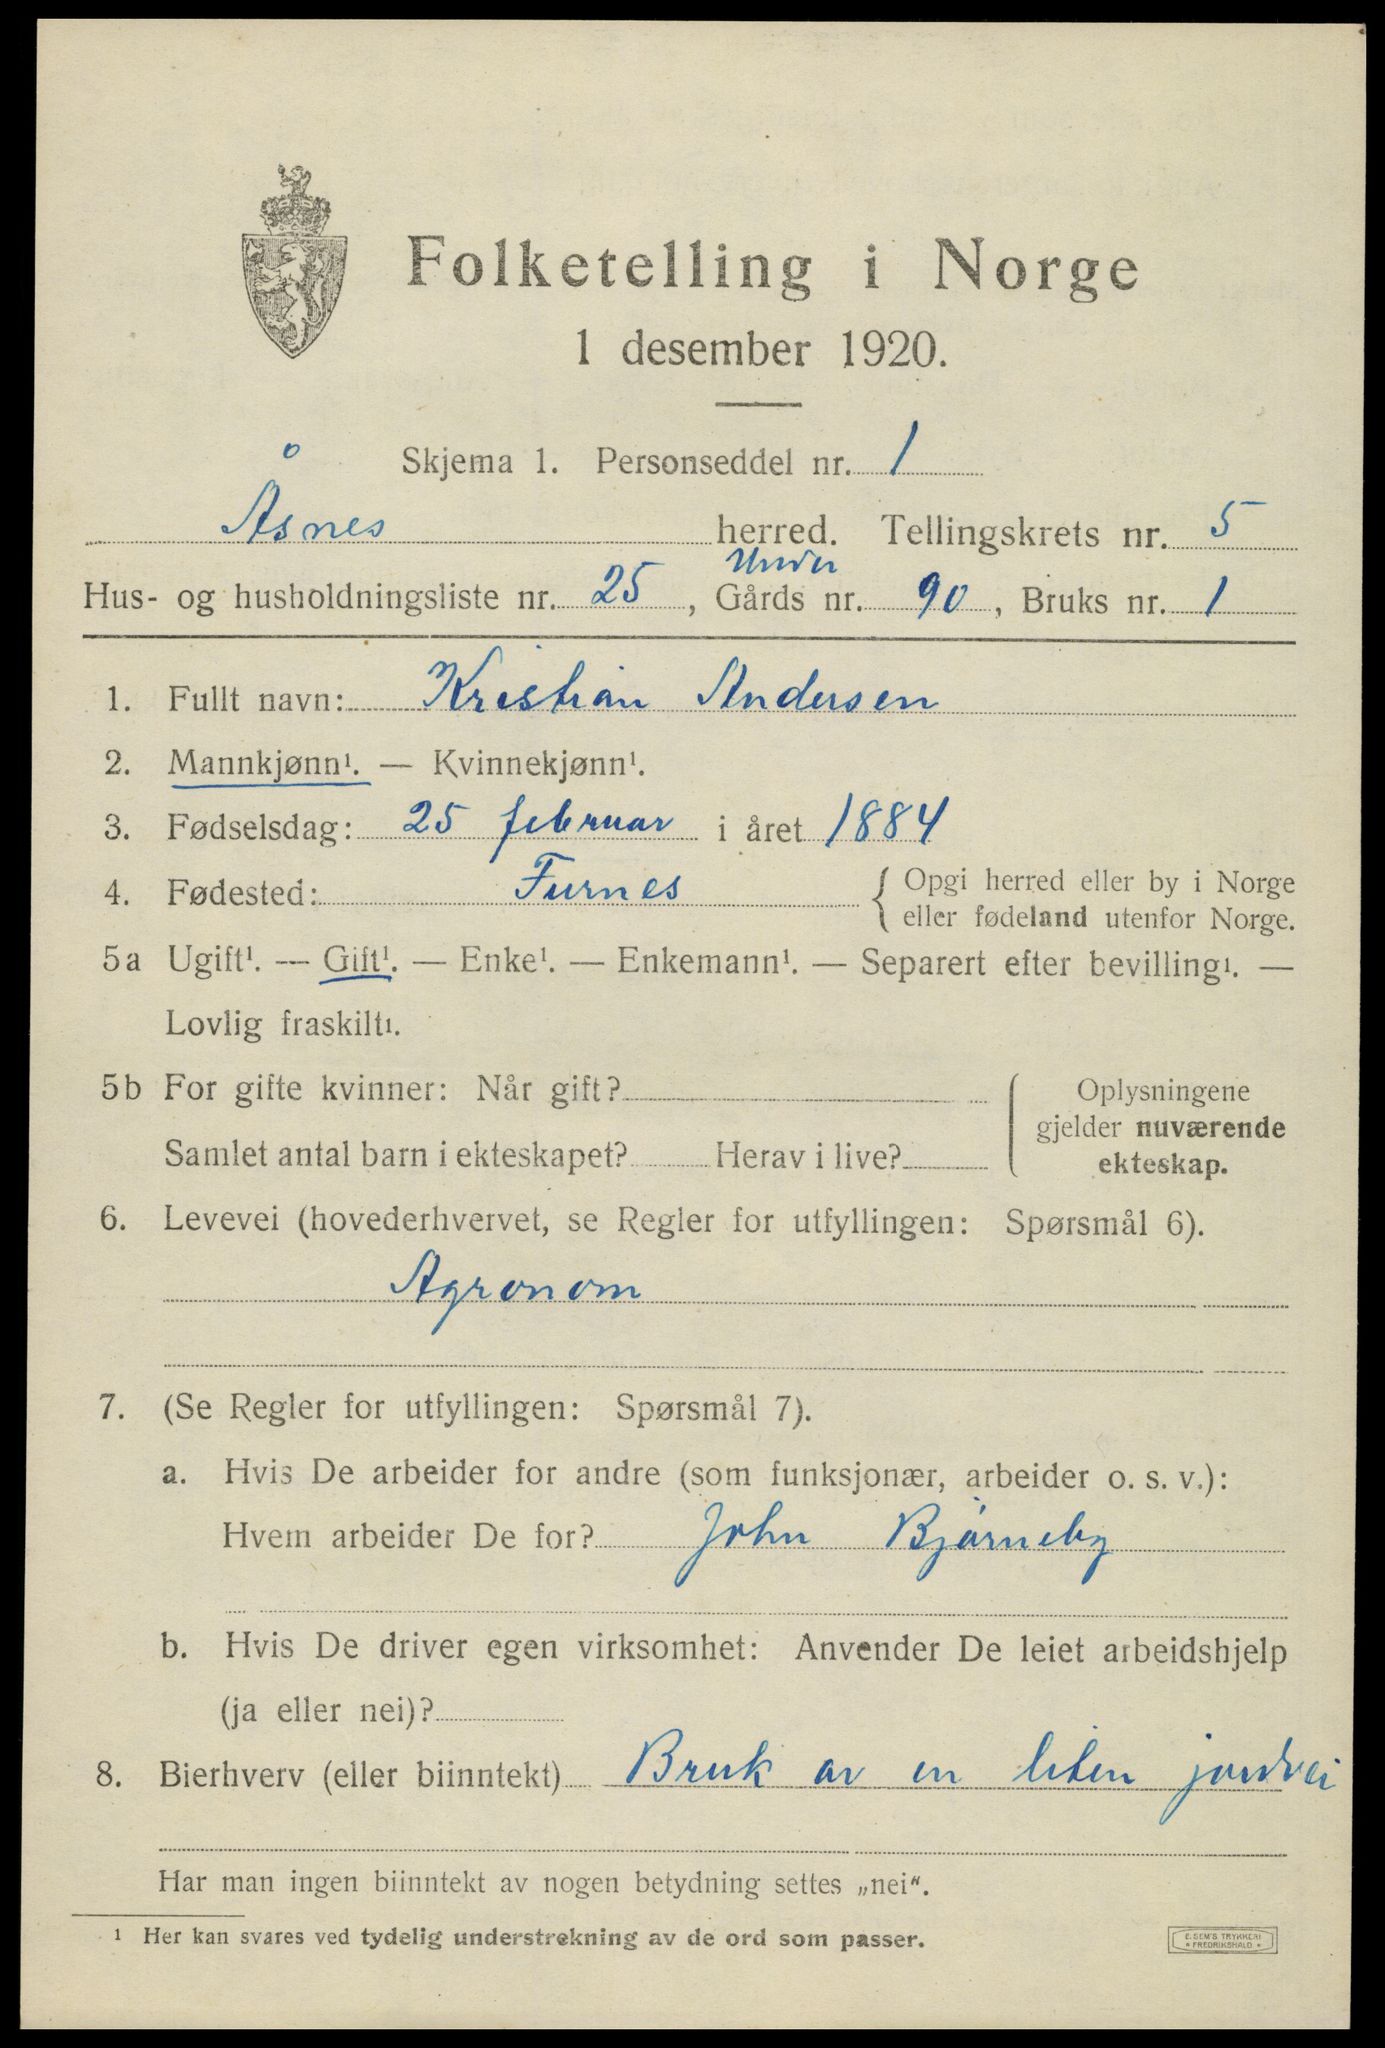 Folketelling i Norge
1 desember 1920.
Skjema 1. Personseddel nr. 1
Åsnes herred. Tellingskrets nr. 5
Under
Hus- og husholdningsliste nr. 25, Gårds nr. 90, Bruks nr. 1
1. Fullt navn: Kristian Andersen
2. Mannkjønn¹. — Kvinnekjønn¹.
3. Fødselsdag: 25 februar i året 1884
4. Fødested: Furnes { Opgi herred eller by i Norge
eller fødeland utenfor Norge.
5a Ugift¹. — Gift¹. — Enke¹. — Enkemann¹. — Separert efter bevilling¹. —
Lovlig fraskilt¹.
5b For gifte kvinner: Når gift? Oplysningene
gjelder nuværende
Samlet antal barn i ekteskapet? Herav i live? ekteskap.
6. Levevei (hovederhvervet, se Regler for utfyllingen: Spørsmål 6).
Agronom
7. (Se Regler for utfyllingen: Spørsmål 7).
a. Hvis De arbeider for andre (som funksjonær, arbeider o. s. v.):
Hvem arbeider De for? John Bjørneby
b. Hvis De driver egen virksomhet: Anvender De leiet arbeidshjelp
(ja eller nei)?
8. Bierhverv (eller biinntekt) Bruk av en liten jordvei
Har man ingen biinntekt av nogen betydning settes „nei“.
¹ Her kan svares ved tydelig understrekning av de ord som passer.
E. SEM'S TRYKKERI
FREDRIKSHALD